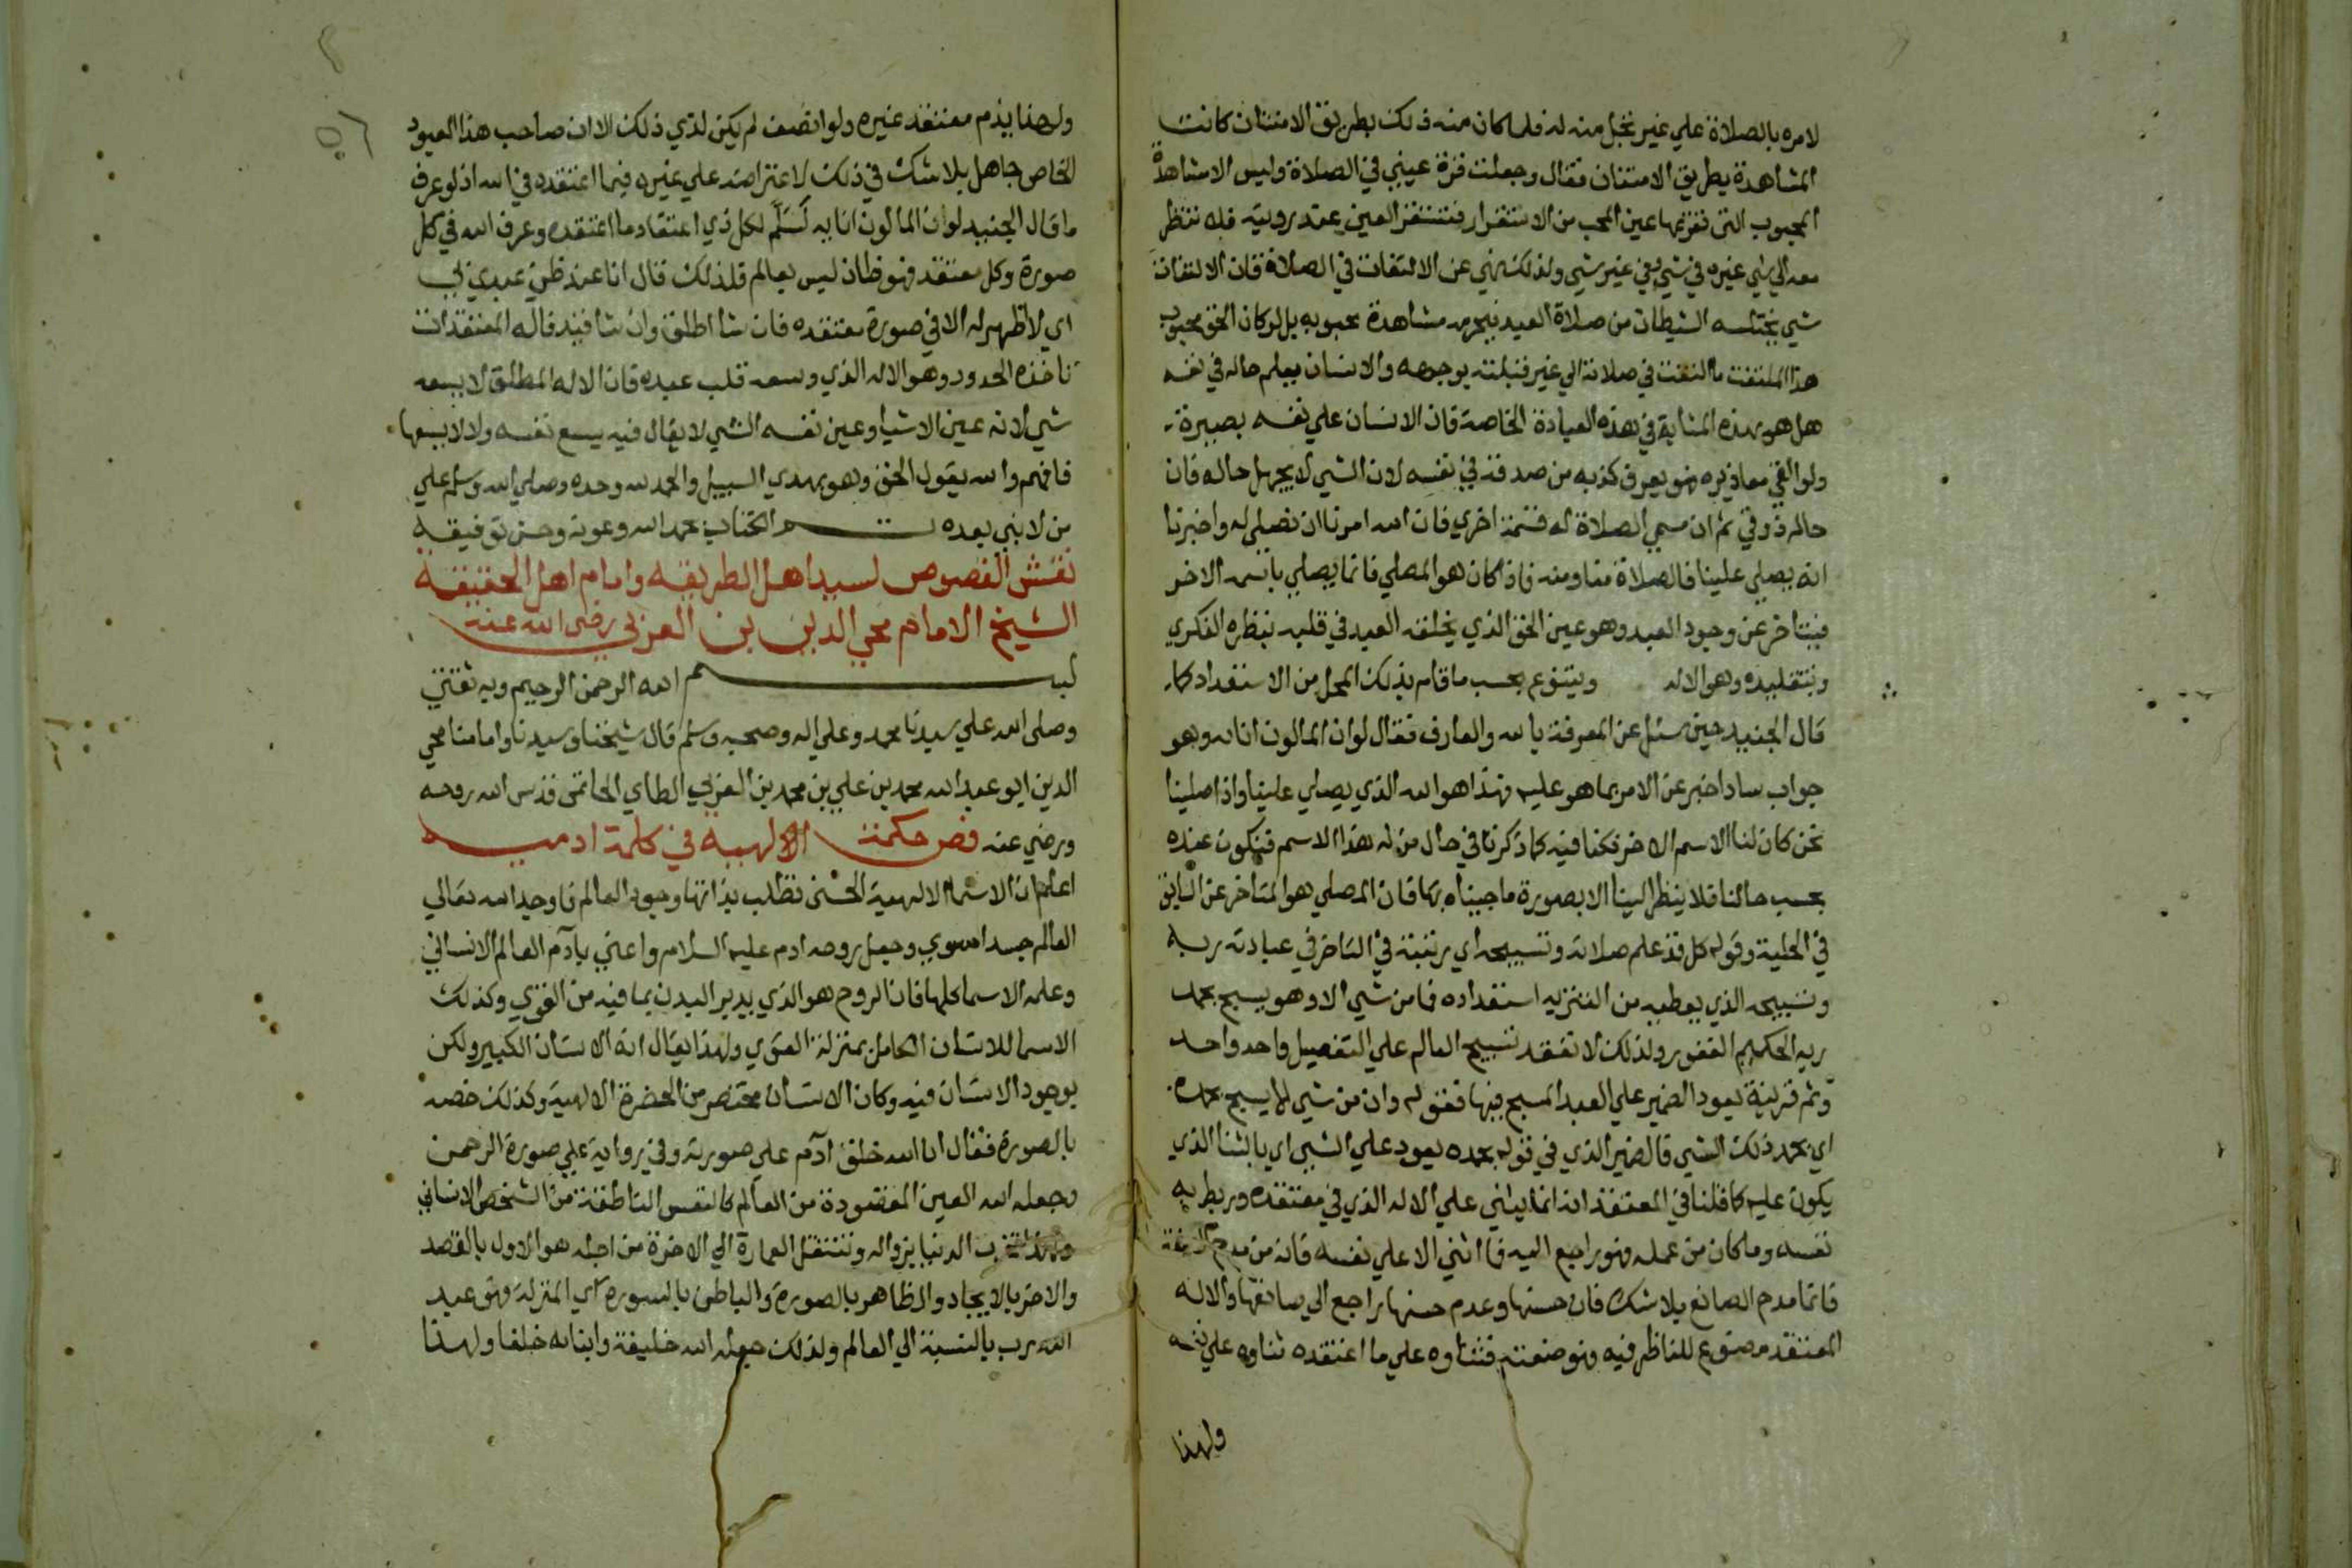 لامره بالصلاة علي غير تجل منه له فلما كان منه ذلك بطريق الامتنان كانت
المشاهدة بطريق الامتنان فقال وجعلت قرة عيني في الصلاة وليس الا مشاهدة
المحبوب التي تقر بها عين المحب من الاستقرار فتستقر العين عند رويته فلا تنظر
معه الي شي غيره في شي وفي غير شي ولذلك نهي عن الالتفات في الصلاة فان الالتفات
شي يختلسه الشيطان من صلاة العبد فيحرمه مشاهدة محبوبه بل لو كان الحق محبوب
هذا الملتفت ما التفت في صلاته الي غير قبلته بوجهه والانسان يعلم حاله في نفسه
هل هو بهذه المثابة في هذه العبادة الخاصة فان الانسان علي نفسه بصيرة
ولو القي معاذيره فهو يعرف كذبه من صدقه في نفسه لان الشي لا يجهل حاله فان
حاله ذوقي ثم ان مسمي الصلاة له قسمة اخري فان الله امرنا ان نصلي له واخبرنا
انه يصلي علينا فالصلاة منا ومنه فاذا كان هو المصلي فانما يصلي باسمه الاخر
فيتاخر عن وجود العبد وهو عين الحق الذي يخلقه العبد في قلبه بنظره الفكري
وبتقليده وهو الاله ويتنوع بحسب ما قام بذلك المحل من الاستعداد كما
قال الجنيد حين سئل عن المعرفة بالله والعارف فقال لوان الما لون انائه وهو
جواب ساد اخبر عن الامر بما هو عليه فهذا هو الله الذي يصلي علينا واذا صلينا
نحن كان لنا الاسم الاخر فكنا فيه كما ذكرنا في حال من له هذا الاسم فنكون عنده
بحسب حالنا فلا ينظر الينا الا بصورة ما جيناه بها فان المصلي هو المتاخر عن السابق
في الحلبة وقوله كل قد علم صلاته وتسبيحه اي رتبته في التاخر في عبادته ربه
وتسبيحه الذي يعطيه من التنزيه استعداده فما من شي الا وهو يسبح بحمد
ربه الحكيم الغفور ولذلك لا نفقه تسبيح العالم علي التفصيل واحد واحد
وثم قرينة يعود الضمير علي العبد المسبح فيها فقوله وان من شي الا يسبح بحمده
اي بحمد ذلك الشي فالضمير الذي في قوله بحمده يعود علي الشي اي بالثنا الذي
يكون عليه كما قلنا في المعتقد انه انما يثني علي الاله الذي في معتقده وربط به
نفسه وما كان من عمله فهو راجع اليه فما اثني الا علي نفسه فانه من مدح الصنعة
فانما مدح الصانع بلا شك فان حسنها وعدم حسنها راجع الي صانعها والاله
المعتقد مصنوع للناظر فيه فهو صنعته فثناوه علي ما اعتقده ثناوه علي نفسه
ولهذا
ولهذا يذم معتقد غيره ولو انصف لم يكن لذي ذلك الا ان صاحب هذا المعبود
الخاص جاهل بلا شك في ذلك لاعتراضه علي غيره فيما اعتقده في الله اذ لو عرف
ما قال الجنيد لون الما لون انايه لسلم لكل ذي اعتقاد ما اعتقده وعرف الله في كل
صورة وكل معتقد فهو ظان ليس بعالم فلذلك قال انا عند ظن عبدي بي
اي لا اظهر له الا في صورة معتقده فان شا اطلق وان شا قيد فاله المعتقدات
تاخذه الحدود وهو الاله الذي وسعه قلب عبده فان الاله المطلق لا يسعه
شي لانه عين الاشيا وعين نفسه الشي لا يقال فيه يسع نفسه ولا لا يسعها
فافهم والله يقول الحق وهو يهدي السبيل والحمد لله وحده وصلي الله وسلم علي
من لا نبي بعده تم الكتاب بحمد الله وعونه وحسن توفيقه
نقش الفصوص لسيد اهل الطريقه وامام اهل الحقيقة
الشيخ الامام محي الدين بن العربي رضي الله عنه
بسم الله الرحمن الرحيم وبه ثقتي
وصلى الله علي سيدنا محمد وعلي اله وصحبه وسلم قال شيخنا وسيدنا وامامنا محي
الدين ابو عبد الله محمد بن علي بن محمد بن العربي الطاي الحاتمي قدس الله روحه
ورضي عنه فص حكمة الالهيه في كلمة ادميه
اعلم ان الاسما الالهية الحسنى تطلب بذاتها وجود العالم فاوجد الله تعالي
العالم جسدا مسوي وجعل روحه ادم عليه السلام واعني بآدم العالم الانساني
وعلمه الاسما كلها فان الروح هو الذي يدبر البدن بما فيه من القوي وكذلك
الاسما للانسان الكامل بمنزلة القوي ولهذا يقال انه الانسان الكبير ولكن
بوجود الانسان فيه وكان الانسان مختصر من الحضرة الالهية وكذلك خصه
بالصورة فقال ان الله خلق آدم علي صورته وفي رواية علي صورة الرحمن
وجعله الله العين المقصودة من العالم كالنفس الناطقة من الشخص الانساني
ولهذا تخرب الدنيا بزواله وتنتقل العمارة الي الاخرة من اجله هو الاول بالقصد
والاخر بالايجاد والظاهر بالصورة والباطن بالسورة اي المنزلة فهو عبد
الله رب بالنسبة الي العالم ولذلك جعله الله خليفة وابناه خلفا ولهذا